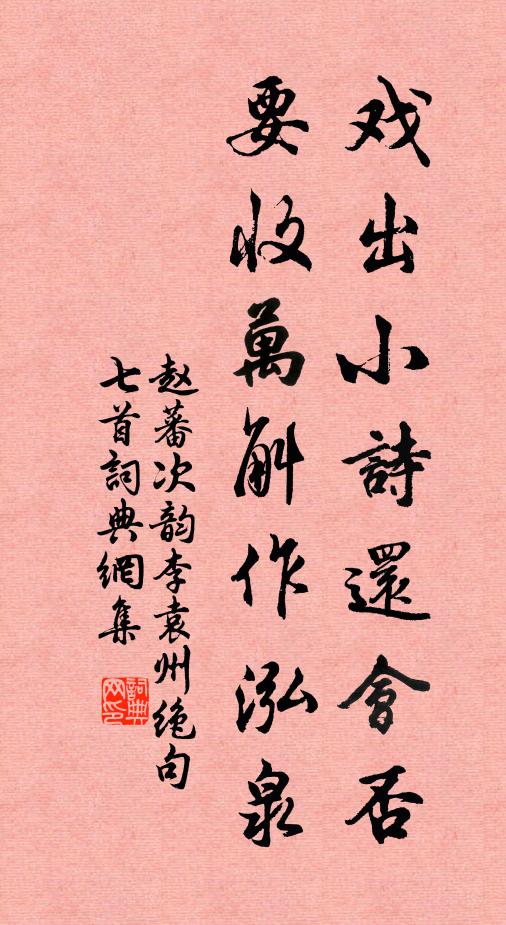 戏出小詩還會否
要收萬斛作泓泉
赵蕃次韵李袁州绝句
七首詞典網集
詞典
网印